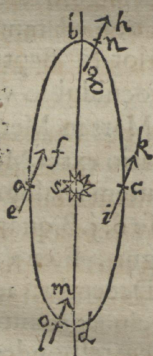 b h
n
g
f k
a s c
e i
m
o
l d